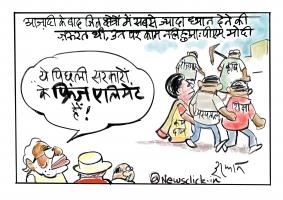 आज़ादी के बाद जिन क्षेत्रों में सबसे ज्यादा ध्यान देने की
ज़रूरत थी, उन पर काम नहीं हुआ: पीएम मोदी
.. ये पिछली सरकारों
के फ्रिंज एलिमेंट
हैं!
कृषि
शिक्षा
अस्पताल
@Newsclick.in